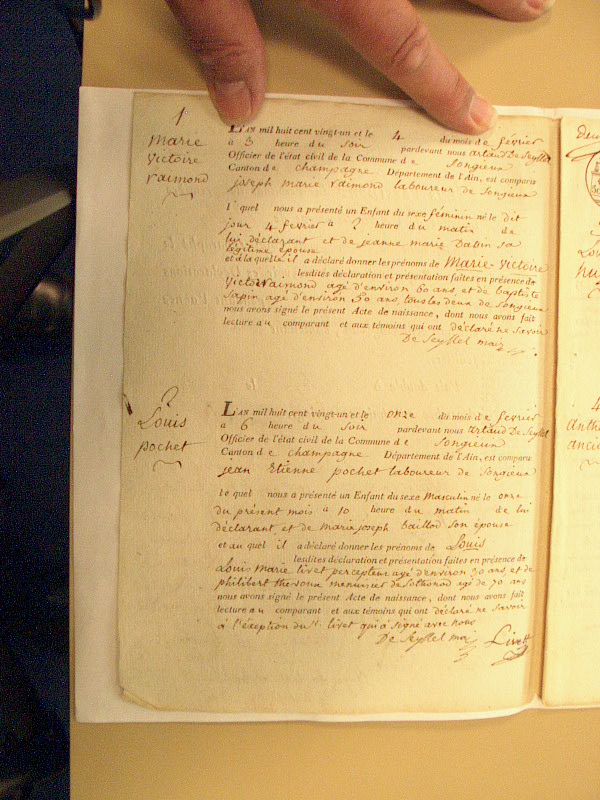 1
marie
victoire
raimond
LAN mil huit cent vingt-un et le 4 du mois de février
à 3 heure du soir pardevant nous artaud De Seyssel
Officier de l'état civil de la Commune de Songieux
Canton de champagne Département de l'Ain, est comparu
joseph marie raimond laboureur de Songieux
lequel nous a présenté un Enfant du sexe féminin né le dit
jour 4 fevrier à 2 heure du matin de
lui déclarant et de jeanne marie sa
légitime épouse
et à la quelle il a déclaré donner les prénoms de Marie-victoire
lesdites déclaration et présentation faites en présence de
raimond agé d'environ 60 ans et de baptiste
Sapin agé d'environ 50 ans tous les deux de Songieux
nous avons signé le présent Acte de naissance, dont nous avons fait
lecture au comparant et aux témoins qui ont déclaré ne savoir
De Seyssel maire
2
Louis
pochet
LAN mil huit cent vingt-un et le onze du mois de fevrier
à 6 heure du soir pardevant nous artaud De Seyssel
Officier de l'état civil de la Commune de Songieux
Canton de champagne Département de l'Ain, est comparu
jean Etienne pochet laboureur de Songieux
lequel nous a présenté un Enfant du sexe Masculin né le onze
du présent mois à 10 heure du matin de lui
déclarant et de marie joseph baillod son épouse
et au quel il a déclaré donner les prénoms de Louis
lesdites déclaration et présentation faites en présence de
Louis marie livet percepteur agé d'environ 30 ans et de
philibert menuisier de Sothonod agé de 70 ans
nous avons signé le présent Acte de naissance, dont nous avons fait
lecture au comparant et aux témoins qui ont déclaré ne savoir
à l'éxéption du Sr. livet qui à signé avec nous
De Seyssel maire Livet